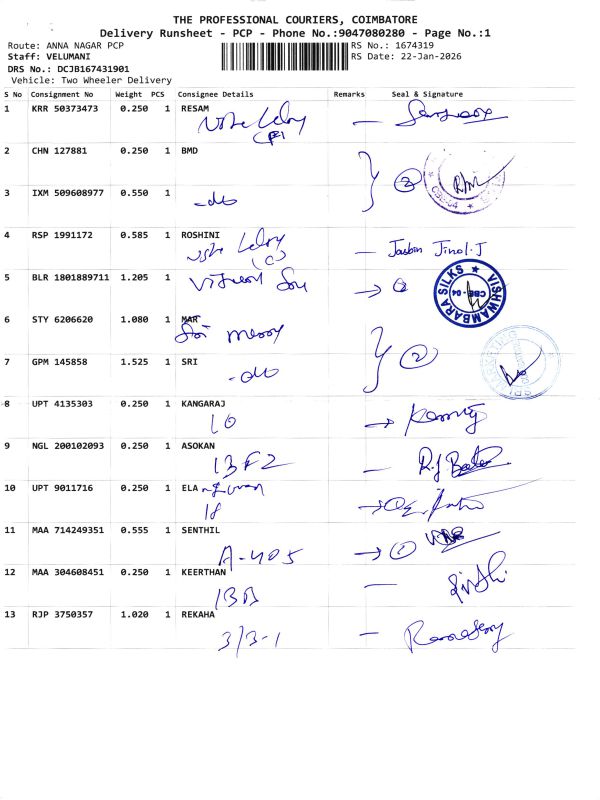 THE PROFESSIONAL COURIERS, COIMBATORE
Delivery Runsheet - PCP - Phone No.:9047080280 - Page No.:1
Route: ANNA NAGAR PCP RS No.: 1674319
Staff: VELUMANI RS Date: 22-Jan-2026
DRS No.: DCJB167431901
Vehicle: Two Wheeler Delivery
S No Consignment No Weight PCS Consignee Details Remarks Seal & Signature
1 KRR 50373473 0.250 1 RESAM
2 CHN 127881 0.250 1 BMD
2
3 IXM 509608977 0.550 1
-do
4 RSP 1991172 0.585 1 ROSHINI
(C) - Jasbin Jinol.J
5 BLR 1801889711 1.205 1
VISHWAMBARA SILKS ★ CBE-04 ★
6 STY 6206620 1.080 1 MAR
7 GPM 145858 1.525 1 SRI
-do 2
8 UPT 4135303 0.250 1 KANGARAJ
10
9 NGL 200102093 0.250 1 ASOKAN
13F2
10 UPT 9011716 0.250 1 ELA
18
11 MAA 714249351 0.555 1 SENTHIL
A-405
12 MAA 304608451 0.250 1 KEERTHAN
13B
13 RJP 3750357 1.020 1 REKAHA
3/3-1